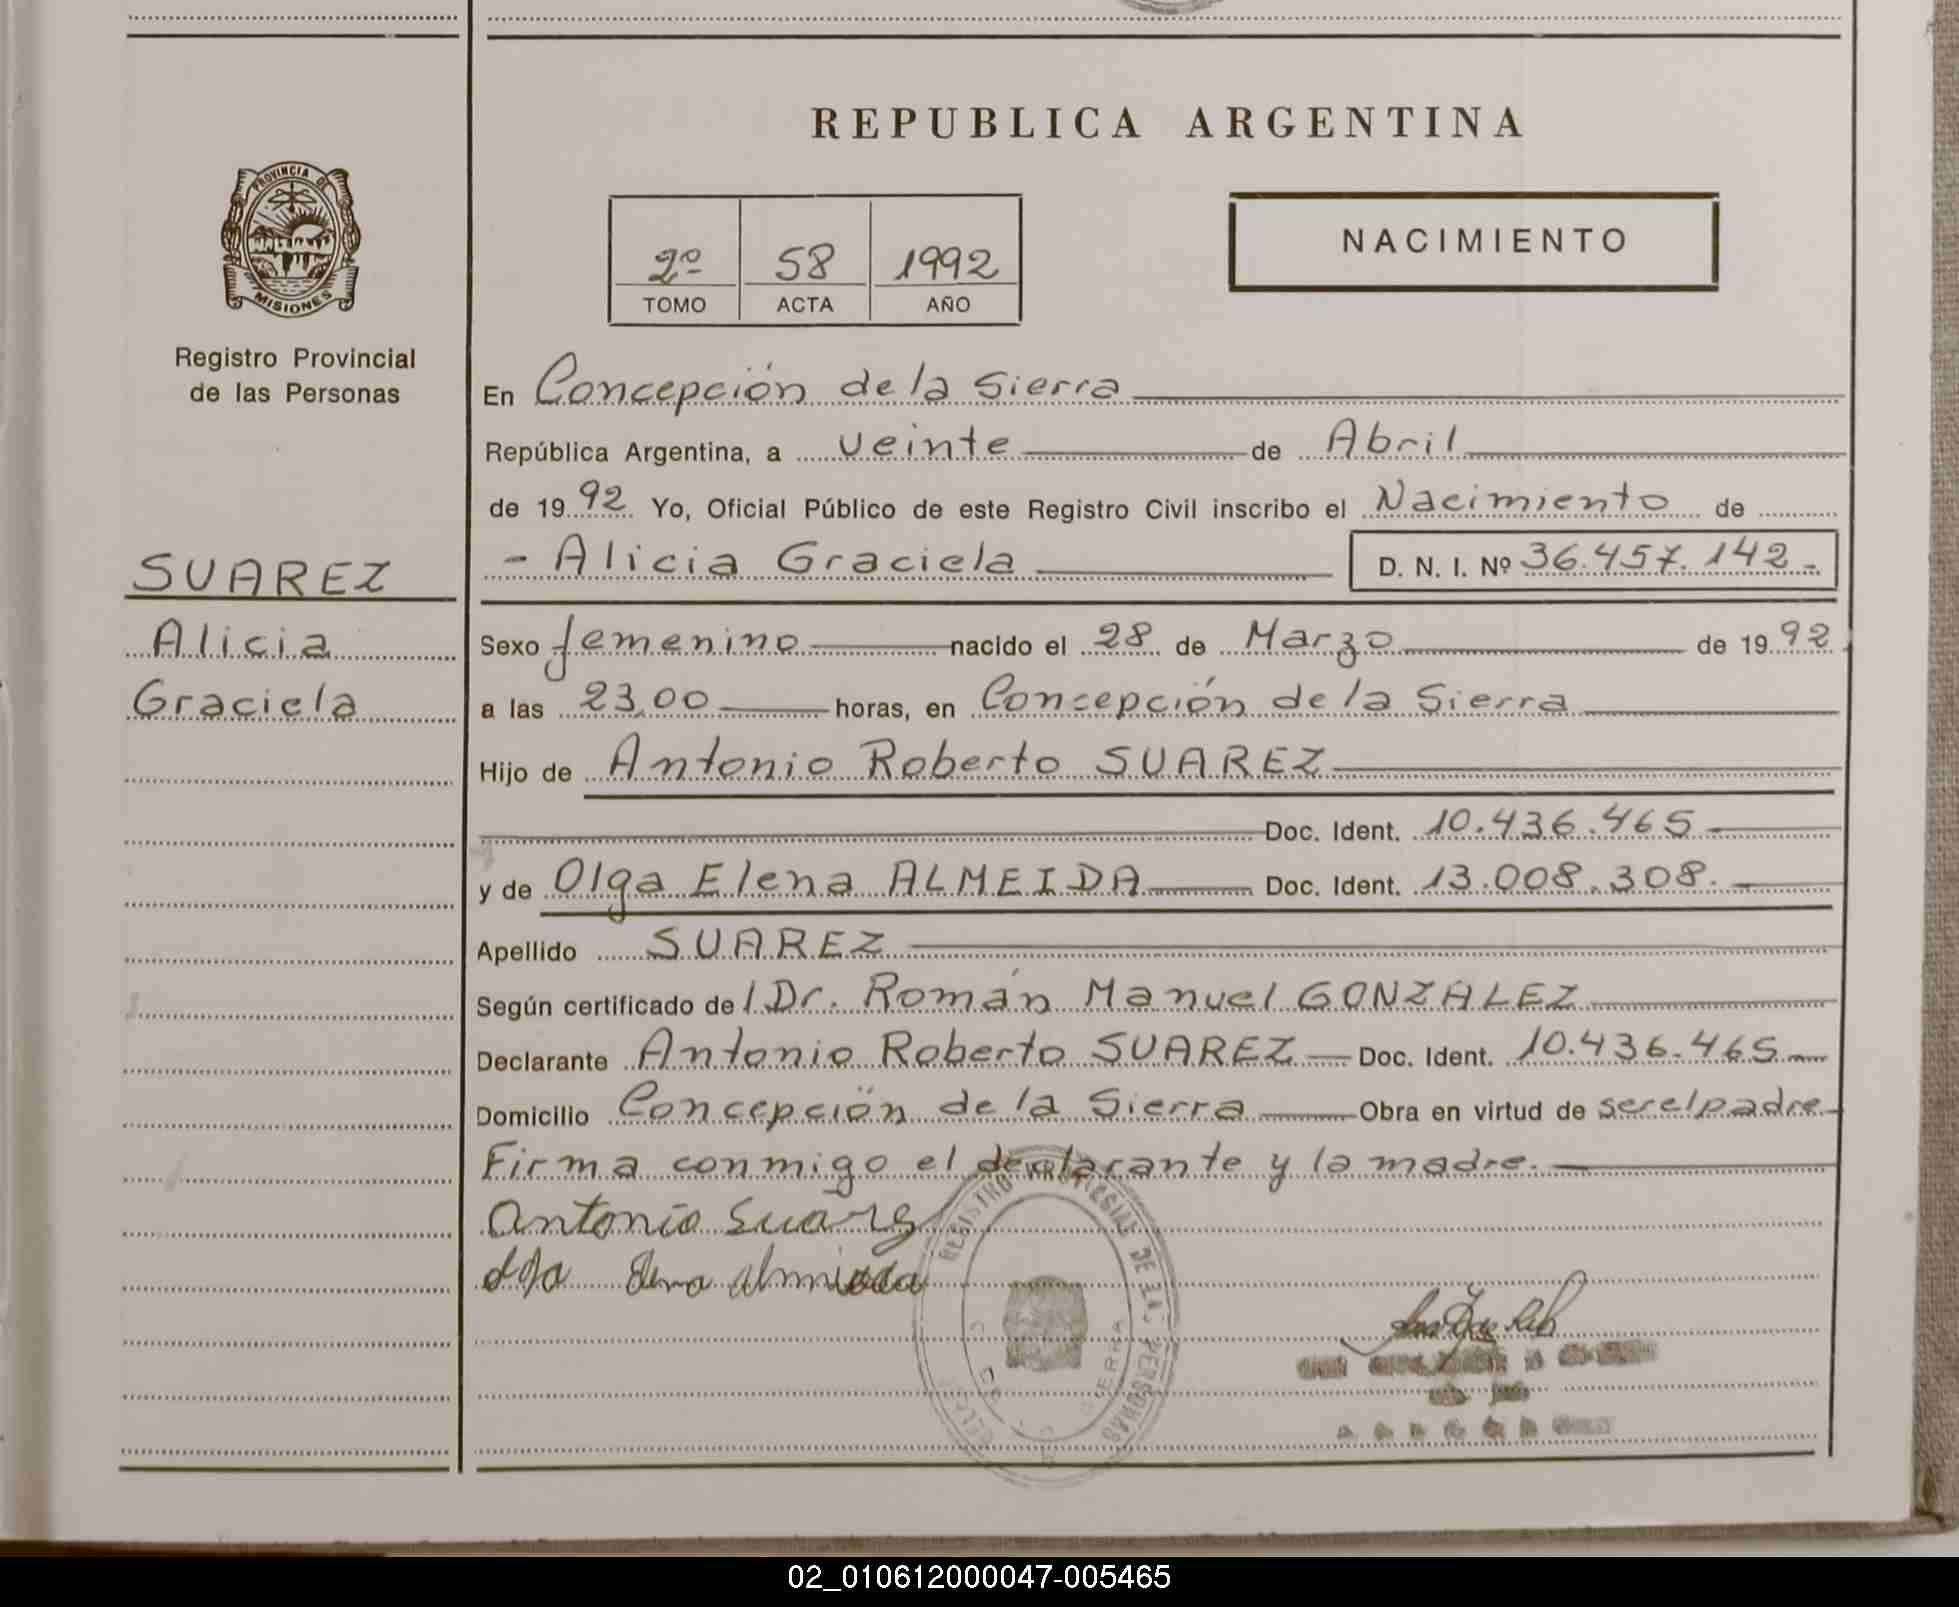 REPUBLICA ARGENTINA
PROVINCIA DE
MISIONES
Registro Provincial
de las Personas
2º 58 1992
TOMO ACTA AÑO
NACIMIENTO
SUAREZ
Alicia
Graciela
En Concepción de la Sierra
República Argentina, a veinte de Abril
de 1992 Yo, Oficial Público de este Registro Civil inscribo el Nacimiento de
- Alicia Graciela D. N. I. Nº 36.457.142-
Sexo femenino nacido el 28 de Marzo de 1992
a las 23,00 horas, en Concepción de la Sierra
Hijo de Antonio Roberto SUAREZ
Doc. Ident. 10.436.465
y de Olga Elena ALMEIDA Doc. Ident. 13.008.308.
Apellido SUAREZ
Según certificado del Dr. Román Manuel GONZALEZ
Declarante Antonio Roberto SUAREZ Doc. Ident. 10.436.465
Domicilio Concepción de la Sierra Obra en virtud de ser el padre
Firma conmigo el declarante y la madre.
Antonio Suarez
REGISTRO PROVINCIAL DE LAS PERSONAS
02_010612000047-005465